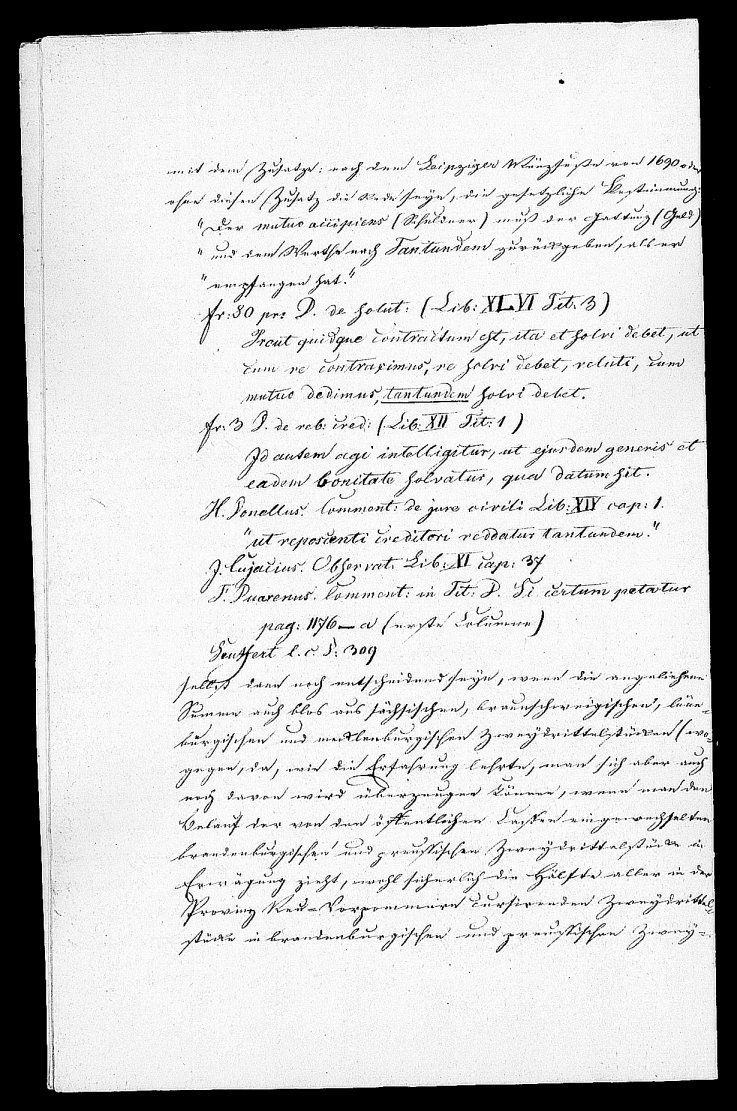 mit dem Zusatze: nach dem Leipziger Münzfuße von 1690 oder
ohne diesen Zusatz die Rede seyn, die gesetzliche Bestimmung:
"Der mutuo accipiens (Schuldner) muß der Gattung (Geld)
"und dem Werthe nach Tantundem zurückgeben, als er
"empfangen hat."
fr: 80 pr: D. de solut: (Lib: XLVI Tit. 3)
Prout quidque contractum est, ita et solvi debet, ut
cum re contraximus, re solvi debet, veluti, cum
mutuo dedimus, tantundem solvi debet.
fr: 3 D. de reb: cred: (Lib: XII Tit: 1)
Id autem agi intelligitur, ut ejusdem generis et
eadem bonitate solvatur, qua datum sit.
H. Donellus. Comment: de jure civili Lib: XIV cap: 1.
"ut reposcenti creditori reddatur tantundem."
J. Cujacius. Observat: Lib: XI cap: 37
F. Duarenus. Comment: in Tit: D. Si certum petatur
pag: 1176 — a (erste Columne)
Seuffert l. c. S: 309
selbst dann noch entscheidend seyn, wenn die angeliehene
Summe auch blos aus sächsischen, braunschweigischen, lüne-
burgischen und mecklenburgischen Zweydrittelstücken (wo-
gegen, da, wie die Erfahrung lehrte, man sich aber auch
noch davon wird überzeugen können, wenn man den
Belauf der von den öffentlichen Cassen eingewechselten
brandenburgischen und preussischen Zweydrittelstücke in
Erwägung zieht, wohl sicherlich die Hälfte aller in der
Provinz Neu-Vorpommern cursirenden Zweydrittel-
stücke in brandenburgischen und preussischen Zwey-